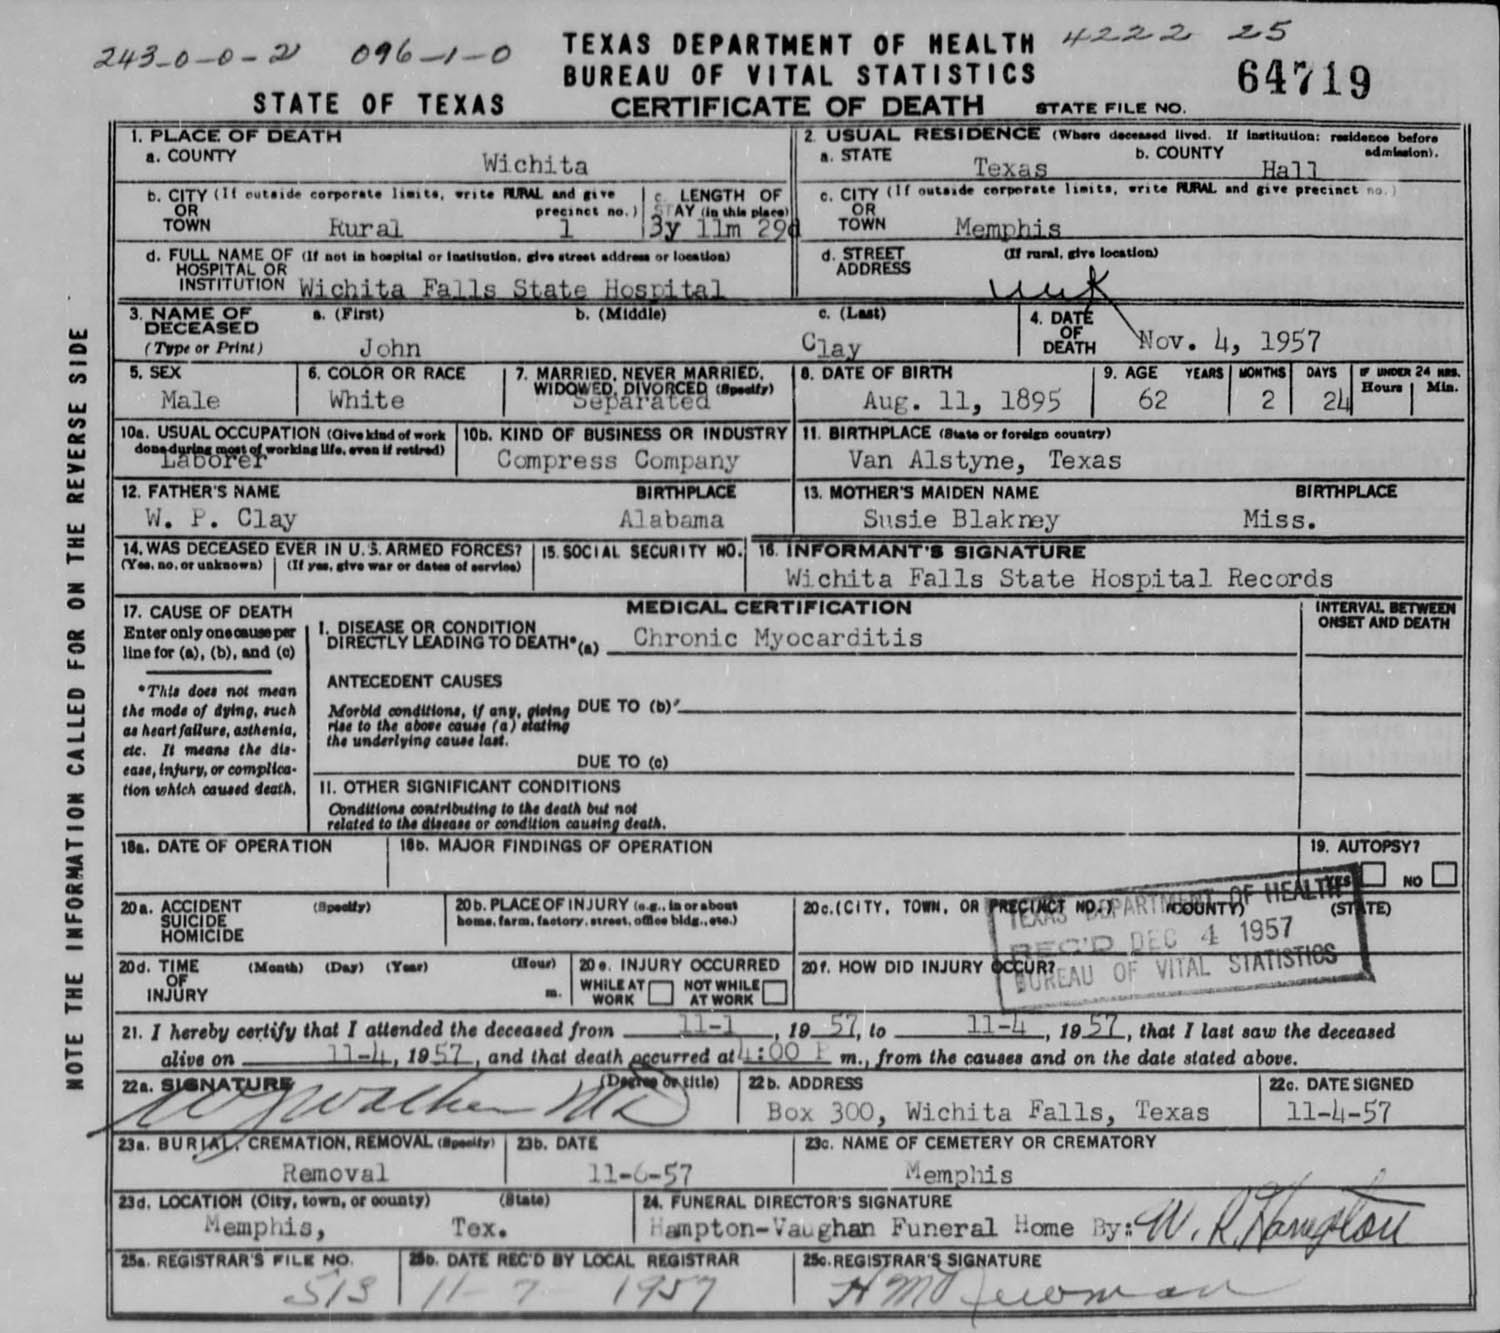 243-0-0-2 096-1-0 TEXAS DEPARTMENT OF HEALTH 4222 25
BUREAU OF VITAL STATISTICS 64719
STATE OF TEXAS CERTIFICATE OF DEATH STATE FILE NO.
NOTE THE INFORMATION CALLED FOR ON THE REVERSE SIDE
1. PLACE OF DEATH
a. COUNTY Wichita
2. USUAL RESIDENCE (Where deceased lived. If institution: residence before admission).
a. STATE Texas b. COUNTY Hall
b. CITY (If outside corporate limits, write RURAL and give precinct no.)
OR
TOWN Rural 1
c. LENGTH OF
STAY (in this place)
3y 11m 29d
c. CITY (If outside corporate limits, write RURAL and give precinct no.)
OR
TOWN Memphis
d. FULL NAME OF (If not in hospital or institution, give street address or location)
HOSPITAL OR
INSTITUTION Wichita Falls State Hospital
d. STREET (If rural, give location)
ADDRESS unk
3. NAME OF a. (First) b. (Middle) c. (Last)
DECEASED
(Type or Print) John Clay
4. DATE
OF
DEATH Nov. 4, 1957
5. SEX
Male
6. COLOR OR RACE
White
7. MARRIED, NEVER MARRIED,
WIDOWED, DIVORCED (Specify)
Separated
8. DATE OF BIRTH
Aug. 11, 1895
9. AGE YEARS MONTHS DAYS IF UNDER 24 HRS.
Hours Min.
62 2 24
10a. USUAL OCCUPATION (Give kind of work
done during most of working life, even if retired)
Laborer
10b. KIND OF BUSINESS OR INDUSTRY
Compress Company
11. BIRTHPLACE (State or foreign country)
Van Alstyne, Texas
12. FATHER'S NAME BIRTHPLACE
W. P. Clay Alabama
13. MOTHER'S MAIDEN NAME BIRTHPLACE
Susie Blakney Miss.
14. WAS DECEASED EVER IN U.S. ARMED FORCES?
(Yes, no, or unknown) (If yes, give war or dates of service)
15. SOCIAL SECURITY NO.
16. INFORMANT'S SIGNATURE
Wichita Falls State Hospital Records
17. CAUSE OF DEATH
Enter only one cause per
line for (a), (b), and (c)
*This does not mean
the mode of dying, such
as heart failure, asthenia,
etc. It means the dis-
ease, injury, or complica-
tion which caused death.
MEDICAL CERTIFICATION
INTERVAL BETWEEN
ONSET AND DEATH
I. DISEASE OR CONDITION
DIRECTLY LEADING TO DEATH* (a) Chronic Myocarditis
ANTECEDENT CAUSES
Morbid conditions, if any, giving
rise to the above cause (a) stating
the underlying cause last.
DUE TO (b)
DUE TO (c)
II. OTHER SIGNIFICANT CONDITIONS
Conditions contributing to the death but not
related to the disease or condition causing death.
18a. DATE OF OPERATION
18b. MAJOR FINDINGS OF OPERATION
19. AUTOPSY?
YES NO
20a. ACCIDENT (Specify)
SUICIDE
HOMICIDE
20b. PLACE OF INJURY (e.g., in or about
home, farm, factory, street, office bldg., etc.)
20c. (CITY, TOWN, OR PRECINCT NO.) (COUNTY) (STATE)
TEXAS DEPARTMENT OF HEALTH
REC'D DEC 4 1957
BUREAU OF VITAL STATISTICS
20d. TIME (Month) (Day) (Year) (Hour)
OF
INJURY m.
20e. INJURY OCCURRED
WHILE AT WORK NOT WHILE AT WORK
20f. HOW DID INJURY OCCUR?
21. I hereby certify that I attended the deceased from 11-1, 1957, to 11-4, 1957, that I last saw the deceased
alive on 11-4, 1957, and that death occurred at 4:00 P m., from the causes and on the date stated above.
22a. SIGNATURE (Degree or title)
Walker MD
22b. ADDRESS
Box 300, Wichita Falls, Texas
22c. DATE SIGNED
11-4-57
23a. BURIAL, CREMATION, REMOVAL (Specify)
Removal
23b. DATE
11-6-57
23c. NAME OF CEMETERY OR CREMATORY
Memphis
23d. LOCATION (City, town, or county) (State)
Memphis, Tex.
24. FUNERAL DIRECTOR'S SIGNATURE
Hampton-Vaughan Funeral Home By: W. R. Hampton
25a. REGISTRAR'S FILE NO.
513
25b. DATE REC'D BY LOCAL REGISTRAR
11-7-1957
25c. REGISTRAR'S SIGNATURE
H M Newman